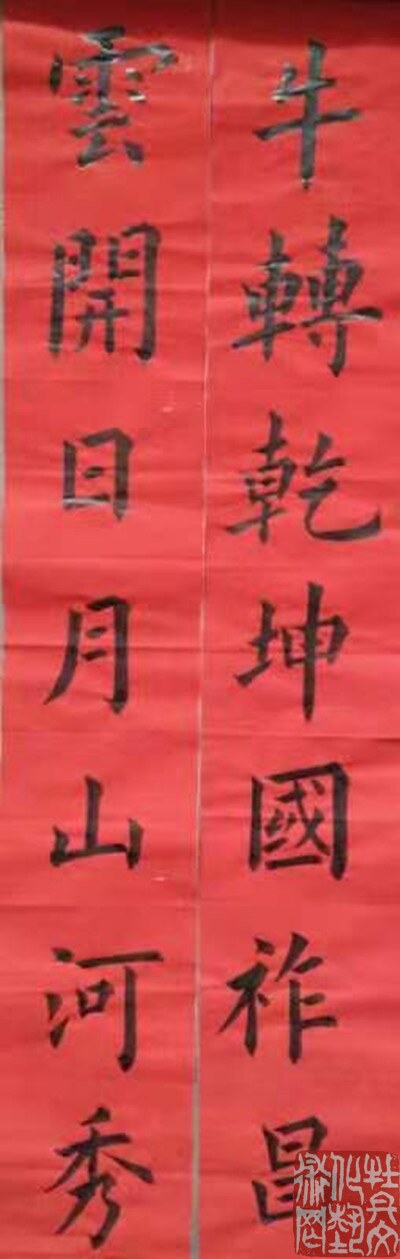 牛轉乾坤國祚昌
雲開日月山河秀